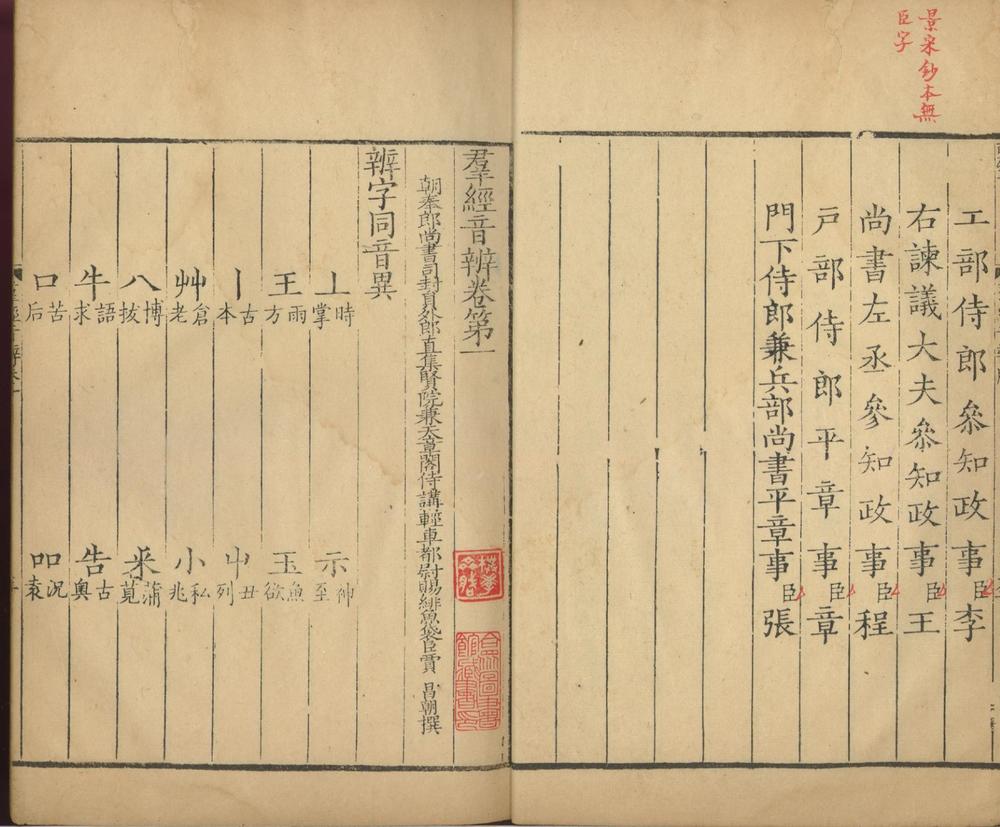 景宋鈔本無
臣字
工部侍郎叅知政事臣李
右諫議大夫叅知政事臣王
尚書左丞參知政事臣程
戶部侍郎平章事臣章
門下侍郎兼兵部尚書平章事臣張
羣經音辨卷第一
朝奉郎尚書司封員外郎直集賢院兼天章閣侍講輕車都尉賜緋魚袋臣賈 昌朝撰
辨字同音異
丄時掌 示神至
王雨方 玉魚欲
丨古本 屮丑列
艸倉老 小私兆
八博拔 釆蒲莧
牛語求 告古奧
口苦后 吅況袁